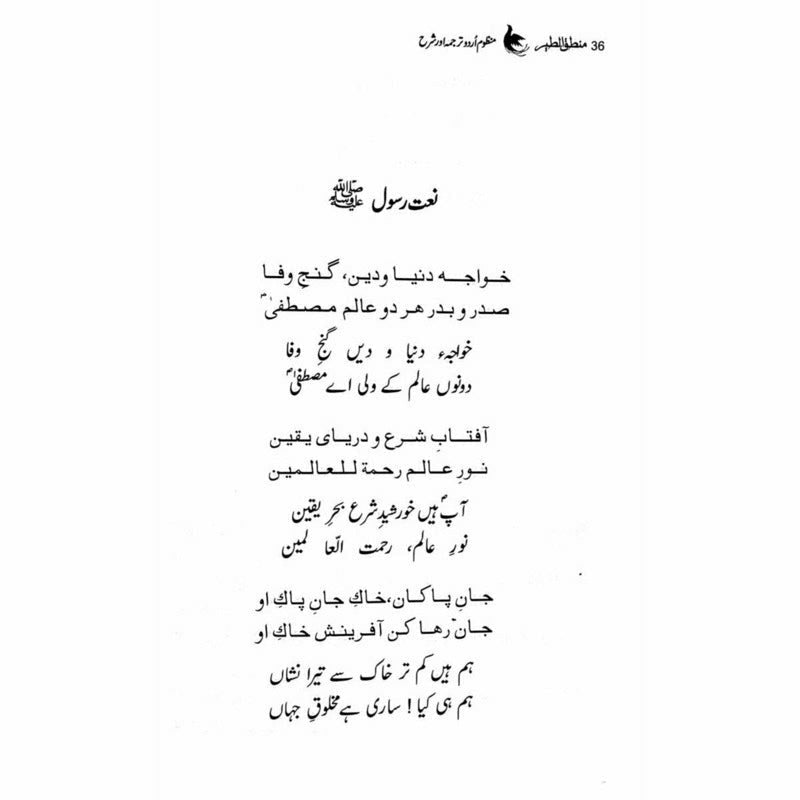 36 منطق الطیر منظوم اُردو ترجمہ اور شرح
نعت رسول ﷺ
خواجہ دنیا ودین، گنجِ وفا
صدر و بدر هر دو عالم مصطفیٰؐ
خواجہء دنیا و دیں گنجِ وفا
دونوں عالم کے ولی اے مصطفیٰؐ
آفتابِ شرع و دریای یقین
نورِ عالم رحمة للعالمین
آپؐ ہیں خورشیدِ شرع بحرِ یقین
نورِ عالم، رحمت العٰا لمین
جانِ پاکان، خاكِ جانِ پاكِ او
جان رها کن آفرینش خاكِ او
ہم ہیں کم تر خاک سے تیرا نشاں
ہم ہی کیا! ساری ہے مخلوقِ جہاں